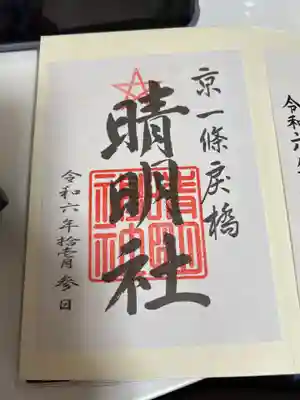 京一條戻橋
晴明社
晴明
神社
令和六年拾壱月参日
令和六